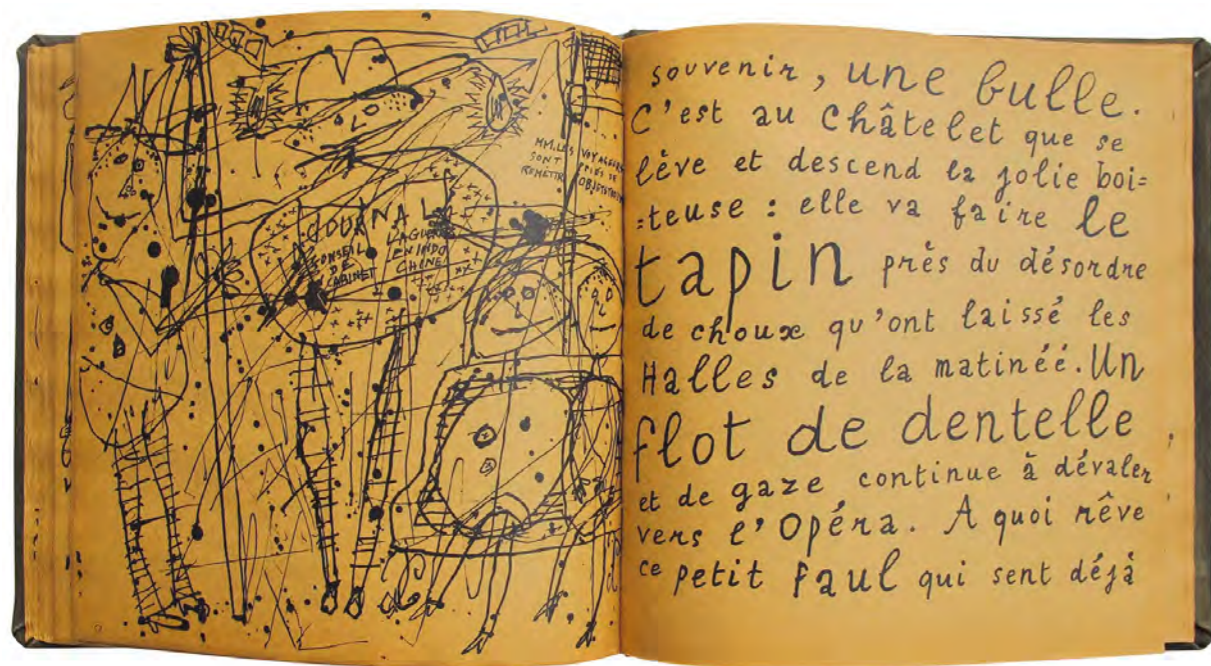 MM. LES VOYAGEURS
SONT PRIÉS DE
REMETTRE
JOURNAL
CONSEIL
DE
CABINET
LA GUERRE
EN INDO
CHINE
souvenir, une bulle.
C'est au Châtelet que se
lève et descend la jolie boi=
=teuse : elle va faire le
tapin près du désordre
de choux qu'ont laissé les
Halles de la matinéé. Un
flot de dentelle
et de gaze continue à dévaler
vers l'Opéra. A quoi rêve
ce petit Paul qui sent déjà